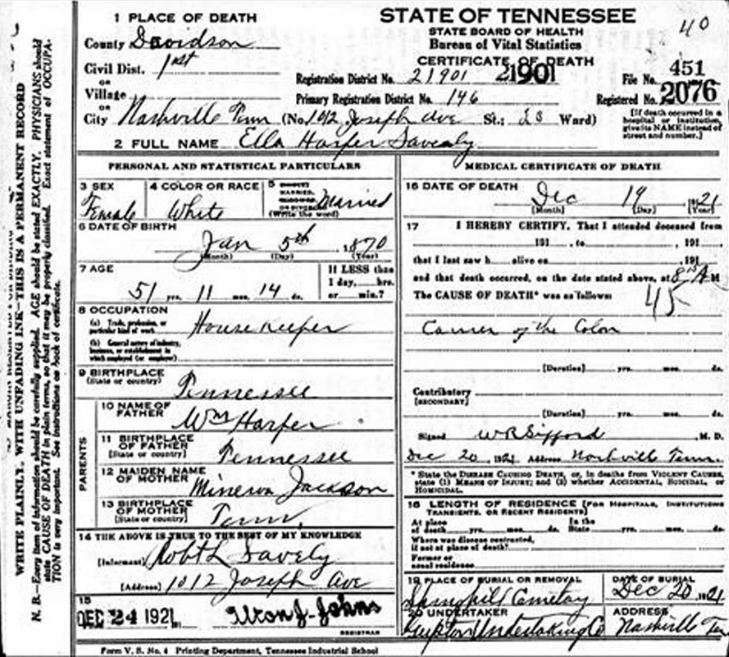 STATE OF TENNESSEE
STATE BOARD OF HEALTH
Bureau of Vital Statistics
CERTIFICATE OF DEATH
40
1 PLACE OF DEATH
County Davidson
Civil Dist. 1st
or
Village
or
City Nashville Tenn (No. 1012 Joseph Ave St.; Ward)
Registration District No. 21901 21901
Primary Registration District No. 146
File No. 451
Registered No. 2076
[If death occurred in a hospital or institution, give its NAME instead of street and number.]
2 FULL NAME Ella Harper Savely
PERSONAL AND STATISTICAL PARTICULARS
3 SEX Female
4 COLOR OR RACE White
5 SINGLE, MARRIED, WIDOWED, OR DIVORCED Married
(Write the word)
6 DATE OF BIRTH
Jan 5th 1870
(Month) (Day) (Year)
7 AGE
51 yrs. 11 mos. 14 ds.
If LESS than 1 day,....hrs. or.....min.?
8 OCCUPATION
(a) Trade, profession, or particular kind of work
House Keeper
(b) General nature of industry, business, or establishment in which employed (or employer)
9 BIRTHPLACE
(State or country)
Tennessee
PARENTS
10 NAME OF FATHER
Wm Harper
11 BIRTHPLACE OF FATHER
[State or country]
Tennessee
12 MAIDEN NAME OF MOTHER
Minerva Jackson
13 BIRTHPLACE OF MOTHER
(State or country)
Tenn.
14 THE ABOVE IS TRUE TO THE BEST OF MY KNOWLEDGE
[Informant] Robt L Savely
[Address] 1012 Joseph Ave
15
DEC 24 1921 Alton J. Johns
REGISTRAR
MEDICAL CERTIFICATE OF DEATH
16 DATE OF DEATH
Dec 19 1921
[Month] (Day) (Year)
17 I HEREBY CERTIFY, That I attended deceased from
191 , to 191 ,
that I last saw h alive on 191
and that death occurred, on the date stated above, at 8 A M
The CAUSE OF DEATH* was as follows:
45
Cancer of the Colon
[Duration] yrs. mos. ds.
Contributory
[SECONDARY]
(Duration) yrs. mos. ds.
Signed WR Sifford M. D.
Dec 20, 1921 Address Nashville Tenn.
* State the DISEASE CAUSING DEATH, or, in deaths from VIOLENT CAUSES, state (1) MEANS OF INJURY; and (2) whether ACCIDENTAL, SUICIDAL, or HOMICIDAL.
18 LENGTH OF RESIDENCE [FOR HOSPITALS, INSTITUTIONS, TRANSIENTS, OR RECENT RESIDENTS]
At place of death yrs. mos. ds.
In the State yrs. mos. ds.
Where was disease contracted, if not at place of death?
Former or usual residence
19 PLACE OF BURIAL OR REMOVAL
Springhill Cemetary
DATE OF BURIAL
Dec 20, 1921
20 UNDERTAKER
Gupton Undertaking Co
ADDRESS
Nashville Tenn
Form V. S. No. 4 Printing Department, Tennessee Industrial School
WRITE PLAINLY, WITH UNFADING INK—THIS IS A PERMANENT RECORD
N. B.—Every item of information should be carefully supplied. AGE should be stated EXACTLY. PHYSICIANS should
state CAUSE OF DEATH in plain terms, so that it may be properly classified. Exact statement of OCCUPA-
TION is very important. See instructions on back of certificate.